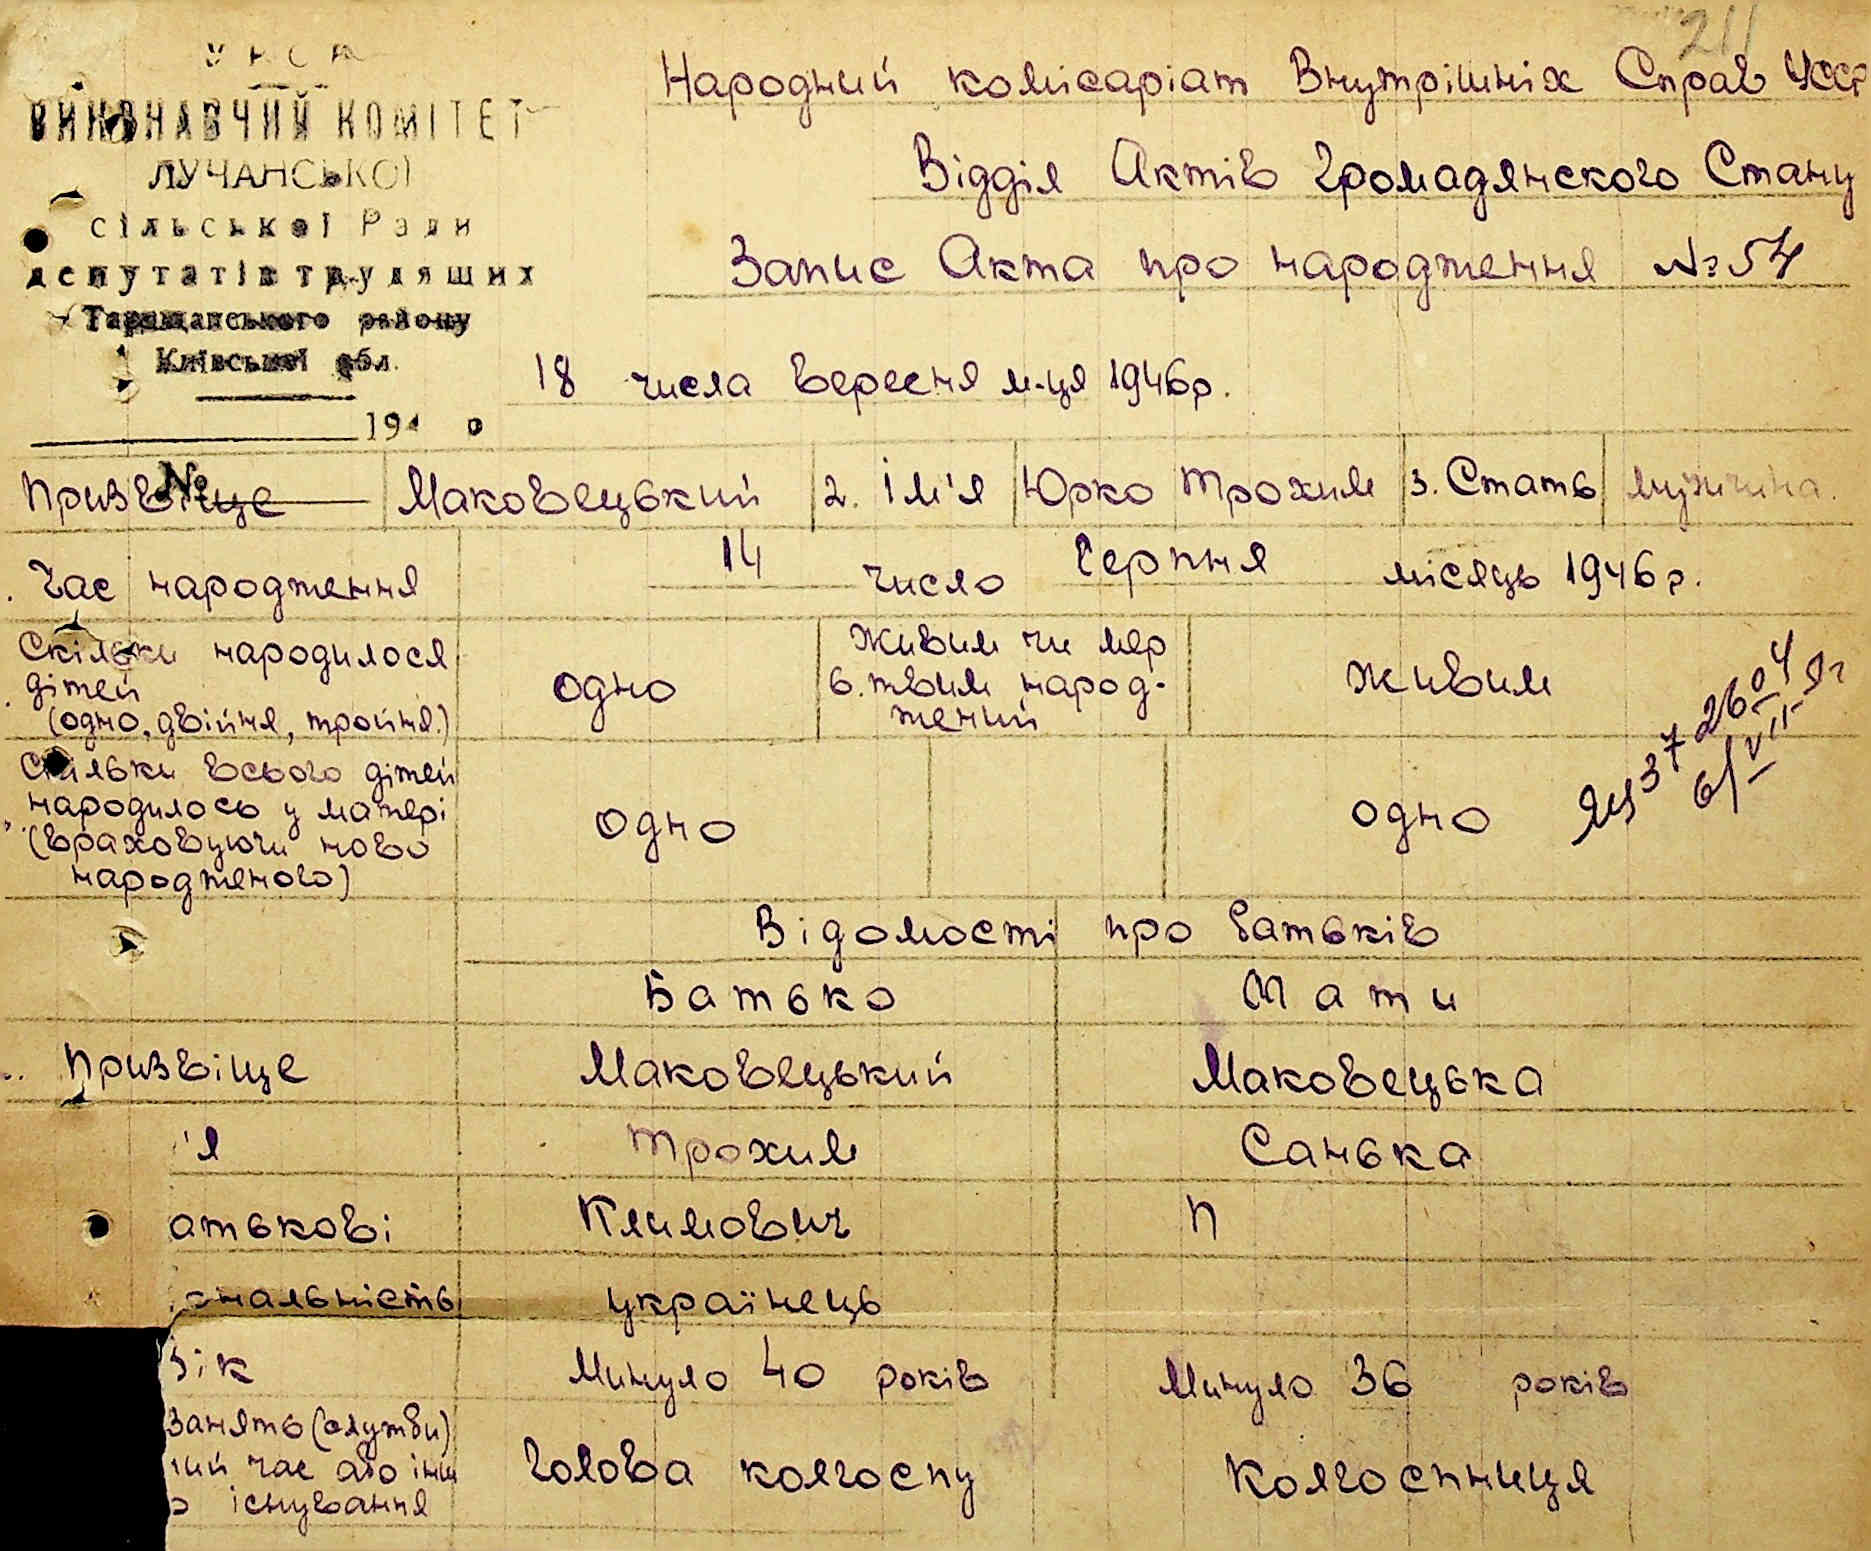 211
УРСР
ВИКОНАВЧИЙ КОМІТЕТ
ЛУЧАНСЬКОЇ
сільської Ради
депутатів трудящих
Таращанського району
Київської обл.
194 р
№
Народний комісаріат Внутрішніх Справ УССР
Відділ Актів Громадянского Стану
Запис Акта про народження №54
18 числа вересня м-ця 1946р.
Призвіще Маковецький 2. Ім'я Юрко Трохим 3. Стать мужчина.
Час народження 14 число Серпня місяць 1946р.
Скільки народилося дітей (одно, двійня, тройня.) одно 6. Живим чи мертвим народжений живим
Скільки всього дітей
народилось у матері
(враховуючи ново
народженого) одно одно
37 2604
6/VII
Відомості про батьків
Батько Мати
Призвіще Маковецький Маковецька
'я Трохим Санька
атькові Климович П
ональність українець
Вік Минуло 40 років Минуло 36 років
Занять (служби)
ний час або інш
існування Голова колгоспу Колгоспниця